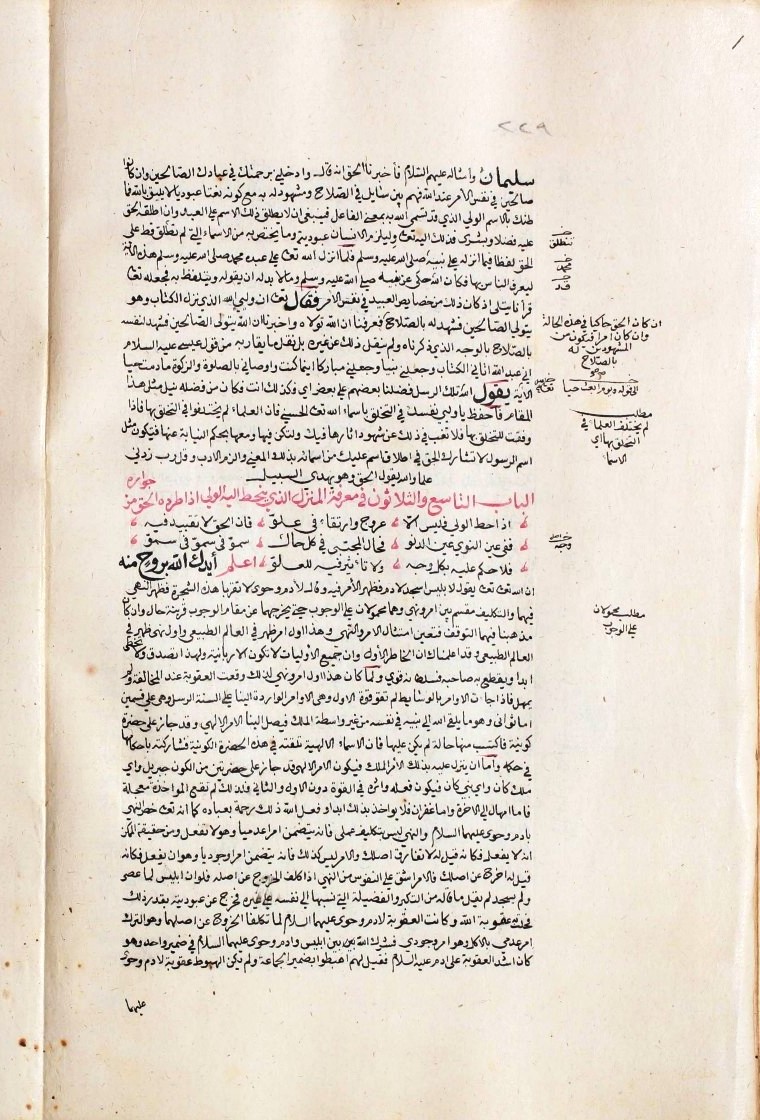 ٢٢٩
سليمان وامثاله عليهم السلام فأخبرنا الحق انه قال وادخلني برحمتك في عبادك الصالحين وان كانوا
صالحين في نفس الامر عند الله فهم بين سايل في الصلاح ومشهود له به مع كونه نعتا عبوديا لا يليق بالله فما
ظنك بالاسم الولي الذي قد تسمى الله به بمعنى الفاعل فينبغي ان لا يطلق ذلك الاسم على العبد وان اطلقه الحق
عليه فذلك اليه تعالى ويلزم الانسان عبوديته وما يختص به من الاسماء التي لم تطلق قط على
الحق لفظا فيما انزله على نبيه صلى الله عليه وسلم فلما انزل الله تعالى على عبده محمد صلى الله عليه وسلم هذه الآية
ليعرف الناس بها فكان الله حكى عن نبيه صلى الله عليه وسلم وما لا بد له ان يقوله ويتلفظ به فجعله تعالى
قرآنا يتلى اذ كان ذلك من خصايص العبيد في نفس الامر فقال تعالى ان وليي الله الذي نزل الكتاب وهو
يتولى الصالحين فشهد له بالصلاح فعرفنا ان الله تولاه واخبرنا ان الله يتولى الصالحين فشهد لنفسه
بالصلاح بالوجه الذي ذكرناه ولم ينقل ذلك عن غيره بل نقل ما يقاربه من قول عيسى عليه السلام
اني عبد الله اتاني الكتاب وجعلني نبيا وجعلني مباركا اينما كنت واوصاني بالصلوة والزكوة ما دمت حيا
الآية يقول الله تلك الرسل فضلنا بعضهم على بعض اي فكذلك انت فكان من فضله نيل مثل هذا
المقام فاحفظ يا وليي نفسك في التخلق باسماء الله تعالى الحسنى فان العلماء لم يختلفوا في التخلق بها فاذا
وفقت للتخلق بها فلا تغب في ذلك عن شهود اثارها فيك ولتكن فيها ومعها بحكم النيابة عنها فيكون مثل
اسم الرسول لا تشارك الحق في اطلاق اسم عليك من اسمائه بذلك المعنى والزم الادب وقل رب زدني
علما والله يقول الحق وهو يهدي السبيل
الباب التاسع والثلاثون في معرفة المنزل الذي ينحط اليه الولي اذا طرده الحق من جواره
اذا حط الولي فليس الا عروج وارتقاء في علو فان الحق لا تقييد فيه
ففي عين النوى عين الدنو فحال المجتبى في كل حال سمو في سمو في سمو
فلا حكم عليه بكل وجه ولا تاثير فيه للعلو اعلم أيدك الله بروح منه
ان الله تعالى يقول لابليس اسجد لادم فظهر الامر فيه وقال لادم وحوى لا تقربا هذه الشجرة فظهر النهي
فيهما والتكليف مقسم بين امر ونهي وهما محمولان على الوجوب حتى يخرجهما عن مقام الوجوب قرينة حال وان كان
مذهبنا فيهما التوقف فتعين امتثال الامر والنهي وهذا اول امر ظهر في العالم الطبيعي واول نهي ظهر في
العالم الطبيعي وقد اعلمناك ان الخاطر الاول وان جميع الاوليات لا تكون الا ربانية ولهذا تصدق ولا تخطئ
ابدا ويقطع به صاحبه فسلطانه قوي ولما كان هذا اول امر ونهي لذلك وقعت العقوبة عند المخالفة ولم
يمهل فاذا جاءت الاوامر بالوسايط لم تقو قوة الاول وهي الاوامر الواردة الينا على السنة الرسل وهي على قسمين
اما ثواني وهو ما يلقي الله الى نبيه في نفسه من غير واسطة الملك فيصل الينا الامر الالهي وقد جاز على حضرة
كونية فاكتسب منها حالة لم يكن عليها فان الاسماء الالهية تلقته في هذه الحضرة الكونية فشاركته باحكامها
في حكمه واما ان ينزل عليه بذلك الامر الملك فيكون الامر الالهي قد جاز على حضرتين من الكون جبريل واي
ملك كان واي نبي كان فيكون فعله واثره في القوة دون الاول والثاني فلذلك لم تقع المواخذة معجلة
فاما امهال الى الاخرة واما غفران فلا يواخذ بذلك ابدا وفعل الله ذلك رحمة بعباده كما انه تعالى خص النهي
بادم وحوى عليهما السلام والنهي ليس بتكليف عملي فانه يتضمن امرا عدميا وهو لا تفعل ومن حقيقة الممكن
انه لا يفعل فكانه قيل له لا تفارق اصلك والامر ليس كذلك فانه يتضمن امرا وجوديا وهو ان يفعل فكانه
قيل له اخرج عن اصلك فالامر اشق على النفوس من النهي اذ كلف الخروج عن اصله فلو ان ابليس لما عصى
ولم يسجد لم يقل ما قاله من التكبر والفضيلة التي نسبها الى نفسه على غيره فخرج عن عبوديته بقدر ذلك
فحلت به عقوبة الله وكانت العقوبة لادم وحوى عليهما السلام لما تكلفا الخروج عن اصلهما وهو الترك
امر عدمي بالاكل وهو امر وجودي فشرك الله بين بين ابليس وادم وحوى عليهما السلام في ضمير واحد وهو
كان اشد العقوبة على ادم عليه السلام فقيل لهم اهبطوا بضمير الجماعة ولم يكن الهبوط عقوبة لادم وحوى
عليهما
تنطلق
محمد
قد
ان كان الحق حاكيا في هذه الحالة
وان كان امرا فيكون من
المشهودين له
بالصلاح
الى قوله ويوم ابعث حيا
مطلب
لم يختلف العلما في
التخلق بها اي
الاسما
وجه
مطلب محمولان
على الوجوب